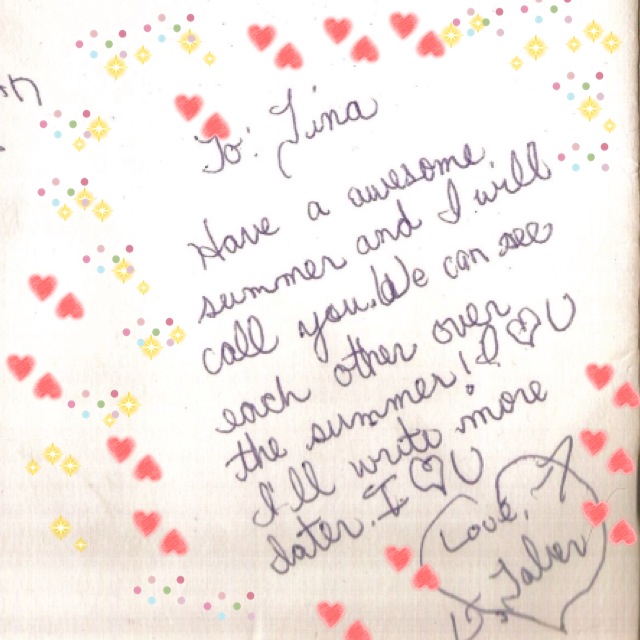 To: Tina
Have a awesome
summer and I will
call you. We can see
each other over
the summer! I ♡ U
I'll write more
later. I ♡ U
Love,